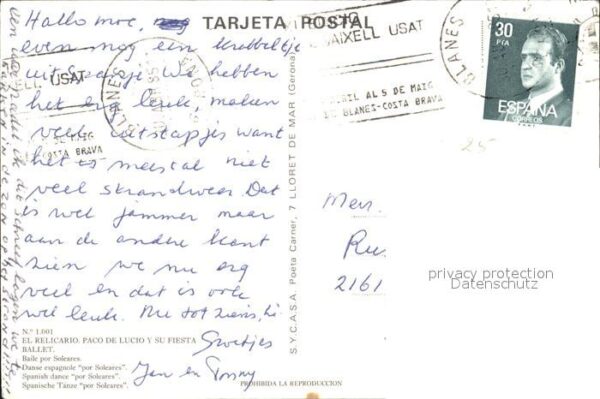 TARJETA POSTAL
Hallo moe,
even nog een krabbeltje
uit Spanje. We hebben
het erg leuk, maken
veel uitstapjes want
het is meestal niet
veel strandweer. Dat
is wel jammer maar
aan de andere kant
zien we nu erg
veel en dat is ook
wel leuk. Nu tot ziens, hè.
Groetjes
Jan en Tonny
N.º 1.001
EL RELICARIO. PACO DE LUCIO Y SU FIESTA
BALLET.
Baile por Soleares.
Danse espagnole "por Soleares".
Spanish dance "por Soleares".
Spanische Tänze "por Soleares".
PROHIBIDA LA REPRODUCCION
S.Y.C.A.S.A. Poeta Carner, 7 LLORET DE MAR (Gerona)
VAIXELL USAT
AL 5 DE MAIG
BLANES-COSTA BRAVA
BLANES
LL USAT
DE MAIG
COSTA BRAVA
BLANES
30
PTA
ESPAÑA
CORREOS
25
Mevr.
Ru
2161
privacy protection
Datenschutz